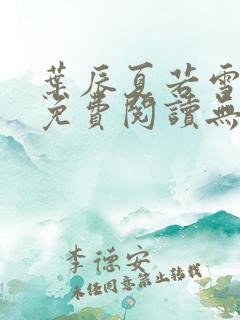 葉辰夏若雪
免費閱讀無
李德安
未經同意禁止轉載